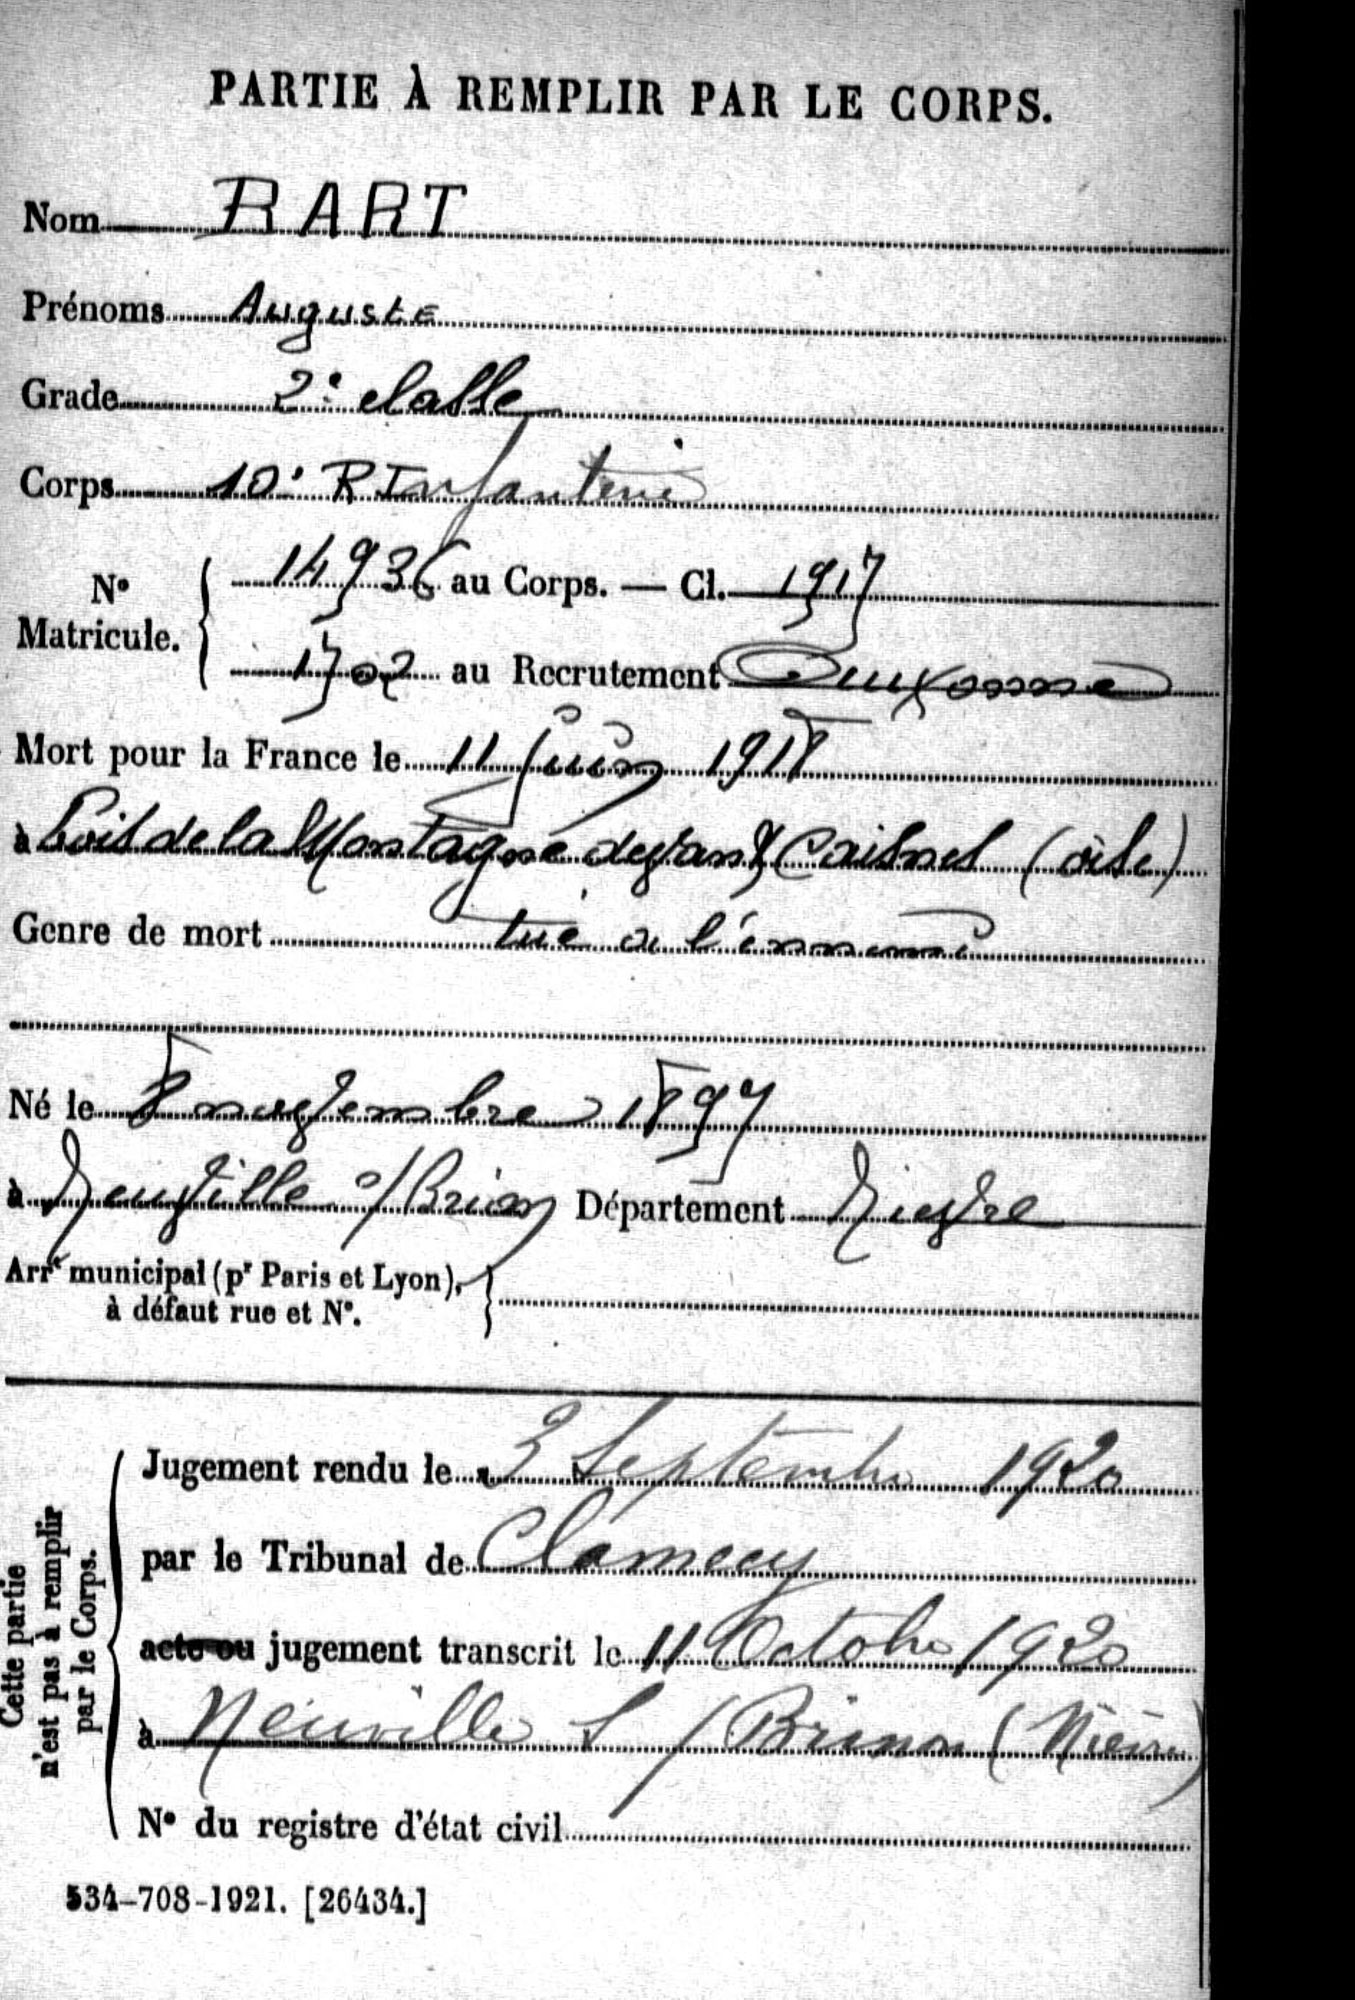 PARTIE À REMPLIR PAR LE CORPS.
Nom BART
Prénoms Auguste
Grade 2e classe
Corps 10e R Infanterie
No Matricule. 14936 au Corps. — Cl. 1917
1702 au Recrutement Auxonne
Mort pour la France le 11 juin 1918
à bois de la Montagne devant Caisnes (oise)
Genre de mort tué à l'ennemi
Né le 8 novembre 1897
à Neuville s/Brion Département Nievre
Arrt municipal (pr Paris et Lyon),
à défaut rue et No.
Cette partie
n'est pas à remplir
par le Corps.
Jugement rendu le 3 Septembre 1920
par le Tribunal de Clamecy
acte ou jugement transcrit le 11 Octobre 1920
à Neuville S/Brinon (Nièvre)
No du registre d'état civil
534-708-1921. [26434.]